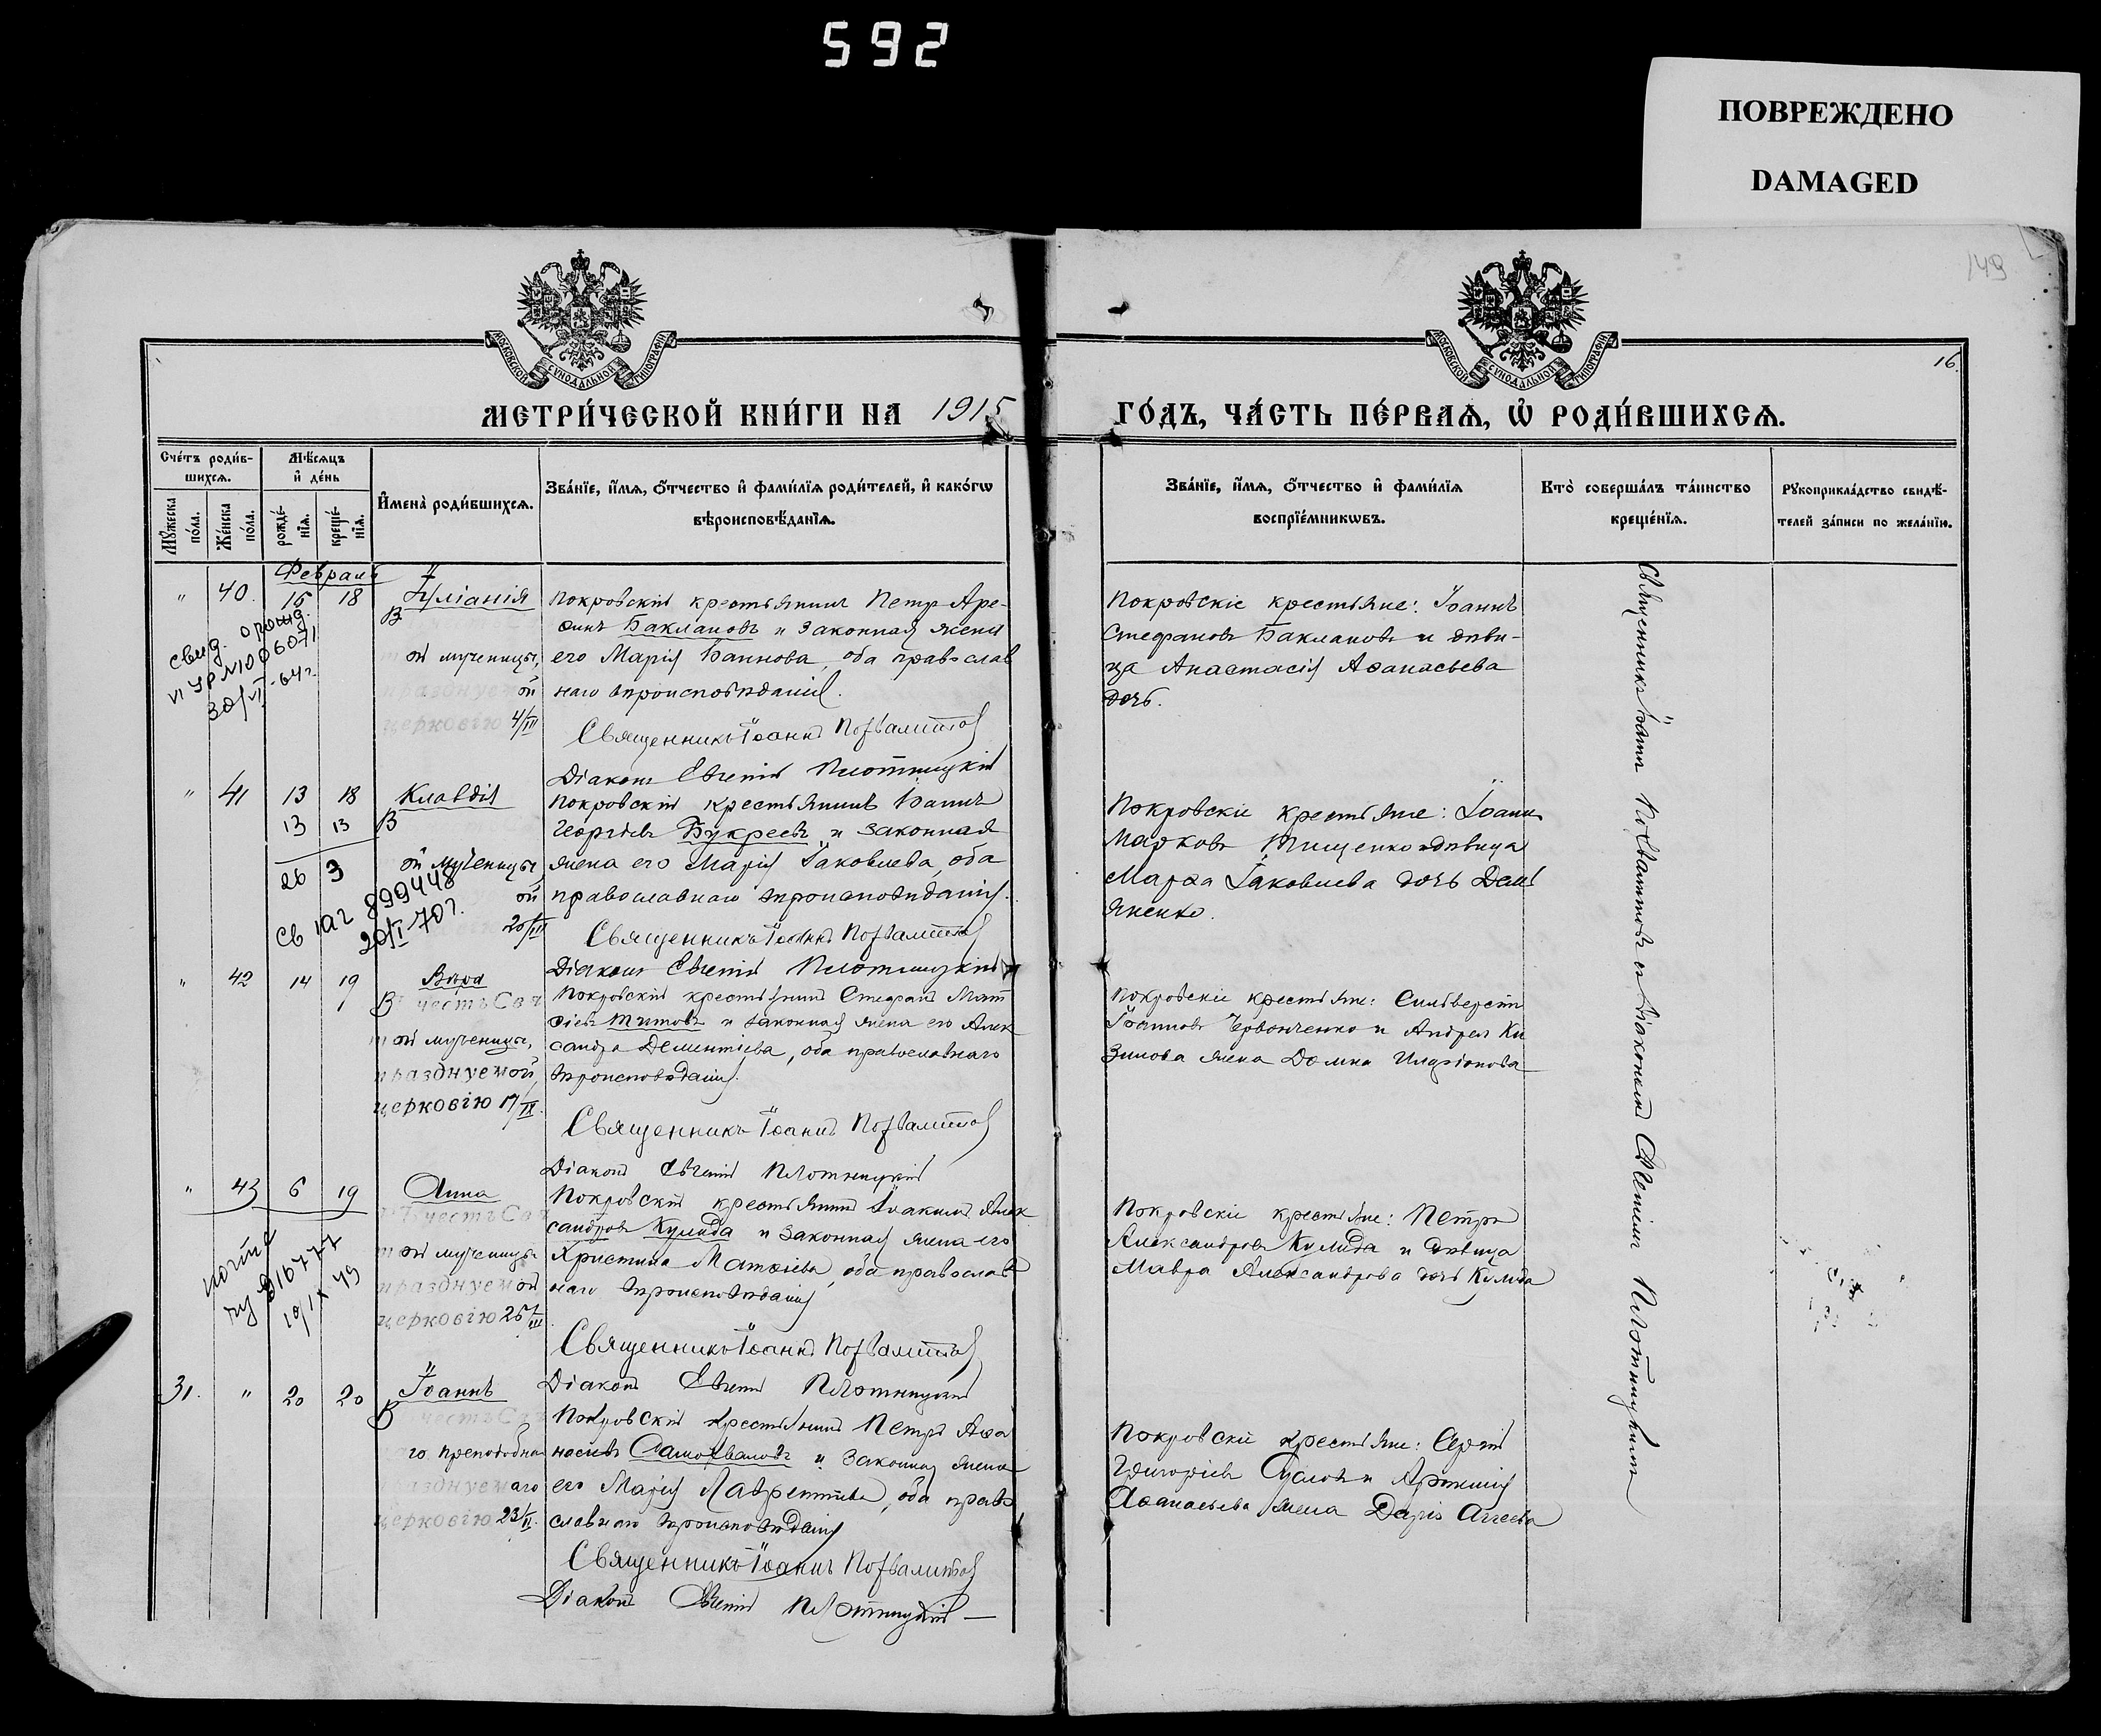 592
ПОВРЕЖДЕНО
DAMAGED
149
16.
МОСКОВСКОЙ СУНОДАЛЬНОЙ ТИПОГРАФІИ
МОСКОВСКОЙ СУНОДАЛЬНОЙ ТИПОГРАФІИ
МЕТРИ́ЧЕСКОЙ КНИ́ГИ НА 1915
ГО́ДЪ, ЧА́СТЬ ПЕ́РВАѦ, Ѡ РОДИ́ВШИХСѦ.
Сче́тъ роди́в-
шихсѧ.
Мꙋжеска по́ла.
Же́нска по́ла.
Мѣ́сѧцъ
и҆ де́нь
рожде́-
нїѧ.
креще́-
нїѧ.
И҆мена̀ роди́вшихсѧ.
Зва́нїе, и҆́мѧ, ѻ҆́тчество и҆ фами́лїѧ роди́телей, и҆ како́гѡ
вѣроисповѣ́данїѧ.
Зва́нїе, и҆́мѧ, ѻ҆́тчество и҆ фами́лїѧ
воспрїе́мникѡвъ.
Кто̀ соверша́лъ та́инство
креще́нїѧ.
Рꙋкоприкла́дство свидѣ́-
телей за́писи по жела́нїю.
Февраль
" 40. 15 18 Іуліанія
В
ой мученицы,
празднуемой
церковію 4/III
свид. о рожд.
30/VI-64г.
Покровскій крестьянинъ Петръ Аре-
финъ Баклановъ и законная жена
его Марія Іаннова, оба православ
наго вѣроисповѣданія.
Священникъ Іоаннъ Похвалитовъ
Діаконъ Евгеній Плотницкій
Покровскіе крестьяне: Іоаннъ
Стефановъ Баклановъ и дѣви-
ца Анастасія Аѳанасьева
дочь.
" 41 13 18 Клавдія
13 13 В
26 3 ой мученицы,
ой
20/III
св 1аг 899448
20/I-70г.
Покровскій крестьянинъ Іаннъ
Георгіевъ Букреевъ и законная
жена его Марія Іаковлева, оба
православнаго вѣроисповѣданія.
Священникъ Іоаннъ Похвалитовъ
Діаконъ Евгеній Плотницкій
Покровскіе крестьяне: Іоаннъ
Марковъ Тищенко и дѣвица
Марѳа Іаковлева дочь Демь
яненко.
" 42 14 19 Вѣра
В честь Свя
той мученицы,
празднуемой,
церковію 17/IX.
Покровскій крестьянинъ Стефанъ Мат
ѳіевъ Титовъ и законная жена его Алек
сандра Дементіева, оба православнаго
вѣроисповѣданія.
Священникъ Іоаннъ Похвалитовъ
Діаконъ Евгеній Плотницкій
Покровскіе крестьяне: Сильверстъ
Іоанновъ Червонченко и Андрея Ки
зилова жена Домна Иларіонова
" 43 6 19 Анна
В честь Свя
той мученицы
празднуемой
церковію 26/III.
816777
19/IX 49
Покровскій крестьянинъ Іоакимъ Алек
сандровъ Кулида и законная жена его
Христина Матѳіева, оба православ
наго вѣроисповѣданія
Священникъ Іоаннъ Похвалитовъ
Діаконъ Евгеній Плотницкій
Покровскіе крестьяне: Петръ
Александровъ Кулида и дѣвица
Мавра Александрова дочь Кулида
31. " 20 20 Іоаннъ
В честь Свя
го преподобна
празднуемаго
церковію 23/II.
Покровскій крестьянинъ Петръ Аѳа
насіевъ Самохваловъ и законная жена
его Марія Лаврентіева, оба право
славнаго вѣроисповѣданія
Священникъ Іоаннъ Похвалитовъ
Діаконъ Евгеній Плотницкій
Покровскіе крестьяне: Сергій
Григоріевъ и
Аѳанасьева жена Дарія
Священникъ Іоаннъ Похвалитовъ и Діакономъ Евгеніемъ Плотницкимъ